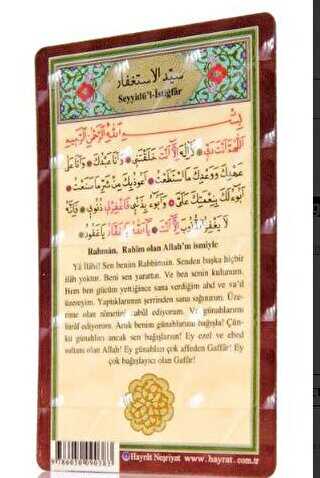 سيّد الاستغفار
Seyyidü'l-İstiğfâr
بِسْمِ اللّٰهِ الرَّحْمٰنِ الرَّحِيمِ
اَللّٰهُمَّ اَنْتَ رَبِّى لَا اِلٰهَ اِلَّا اَنْتَ خَلَقْتَنِى وَاَنَا عَبْدُكَ وَاَنَا عَلٰى
عَهْدِكَ وَوَعْدِكَ مَا اسْتَطَعْتُ اَعُوذُ بِكَ مِنْ شَرِّ مَا صَنَعْتُ
اَبُوءُ لَكَ بِنِعْمَتِكَ عَلَىَّ وَاَبُوءُ بِذَنْبِى فَاغْفِرْلِى ذُنُوبِى فَاِنَّهُ
لَا يَغْفِرُ الذُّنُوبَ اِلَّا اَنْتَ يَا غَفُورُ
Rahmân, Rahîm olan Allah'ın ismiyle
Yâ İlâhî! Sen benim Rabbimsin. Senden başka hiçbir
ilâh yoktur. Beni sen yarattın. Ve ben senin kulunum.
Hem ben gücüm yettiğince sana verdiğim ahd ve va'd
üzereyim. Yaptıklarımın şerrinden sana sığınırım. Üze-
rime olan nîmetini kabûl ediyorum. Ve günahlarımı
îtirâf ediyorum. Artık benim günahlarımı bağışla! Çün-
kü günahları ancak sen bağışlarsın! Ey ezel ve ebed
sultanı olan Allah! Ey günahları çok affeden Gaffâr! Ey
çok bağışlayıcı olan Gaffûr!
Hayrât Neşriyat www.hayrat.com.tr